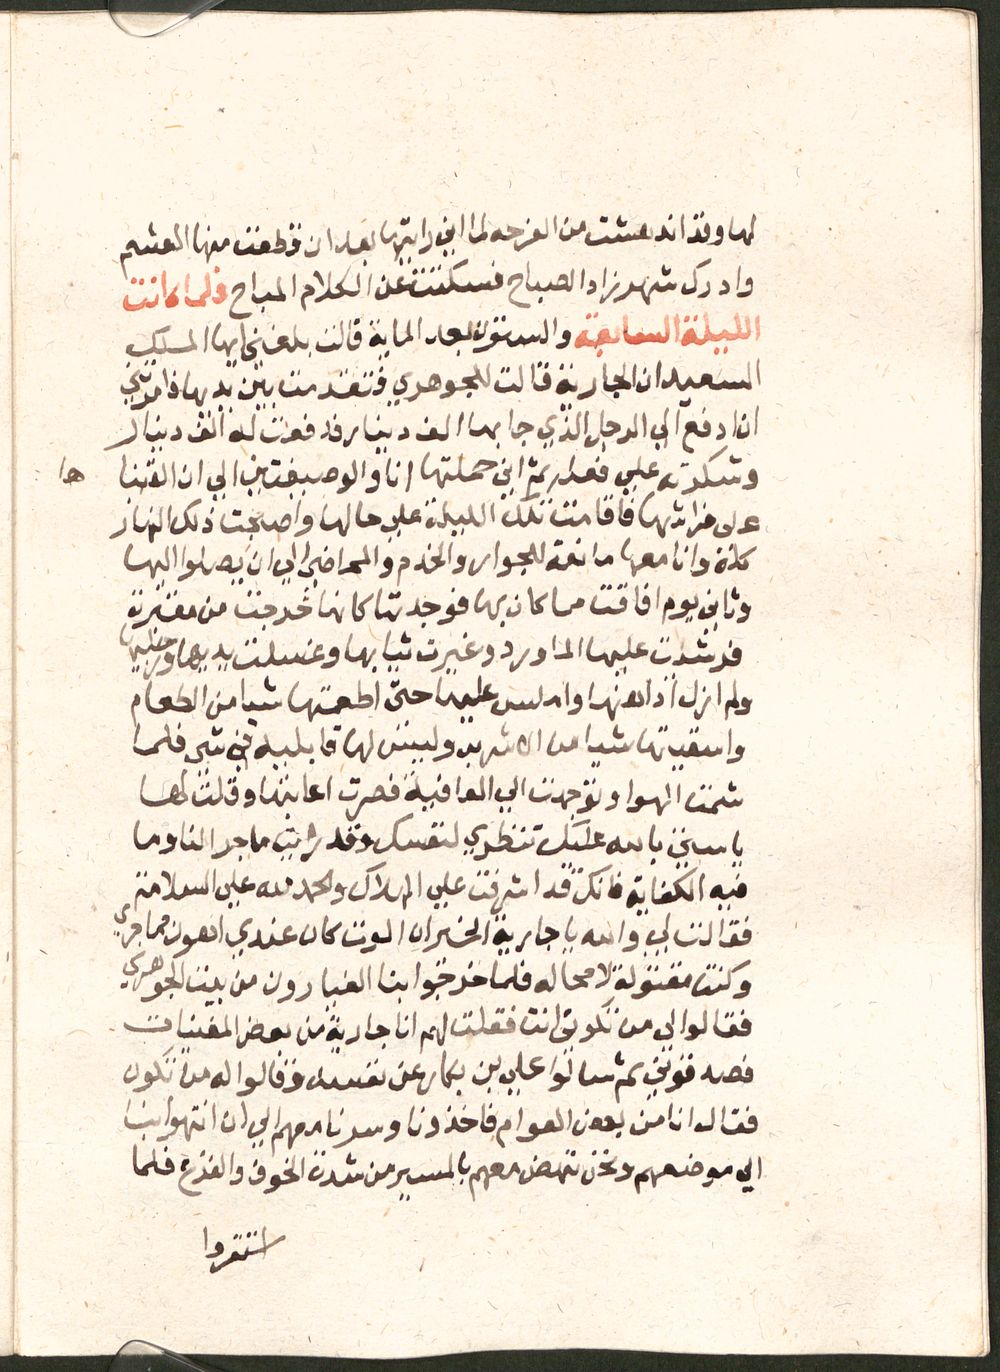 لها وقد اندهشت من الفرحه لما اني رايتها بعد ان قطعت منها العشم
وادرك شهرزاد الصباح فسكتت عن الكلام المباح فلما كانت
الليلة السابعة والستون بعد الماية قالت بلغني ايها الملك
السعيد ان الجارية قالت للجوهري فتقدمت بين يديها فامرتني
ان ادفع الي الرجل الذي جا بها الف دينار فدفعت له الف دينار
وشكرته علي فعله ثم اني حملتها انا والوصيفتين الي ان القينا
ها
علي فراشها فاقامت تلك الليلة علي حالها واصبحت ذلك النهار
كله وانا معها مانعة للجوار والخدم والمحاضي الي ان يصلوا اليها
وثاني يوم افاقت مما كان بها فوجدتها كانها خرجت من مقبرة
فرشيت عليها الماورد وغيرت ثيابها وغسلت يديها ورجليها
ولم ازل اذا انها وامليس عليها حتي اطعمتها شيا من الطعام
واسقيتها شيا من الاشربه وليس لها قابليه في شي فلما
شمت الهوا وتوجهت الي العافية فصرت اعاتبها وقلت لها
يا ستي بالله عليك تنظري لنفسك وقد رايت ما جرا لنا وما
فيه الكفاية فانك قد اشرفت علي الهلاك والحمد لله علي السلامة
فقالت لي والله يا جارية الخير ان الموت كان عندي اهون مما جري
وكنت مقتولة لا محاله فلما خرجوا بنا العيارون من بيت الجوهري
فقالوا لي من تكوني انت فقلت لهم انا جارية من بعض المغنيات
فصدقوني ثم سالوا علي بن بكار عن نفسه وقالوا له من تكون
فقال انا من بعض العوام فاخذونا وسرنا معهم الي ان انتهوا بنا
الي موضعهم ونحن ننهض معهم بالمسير من شدة الخوف والفزع فلما
استقروا